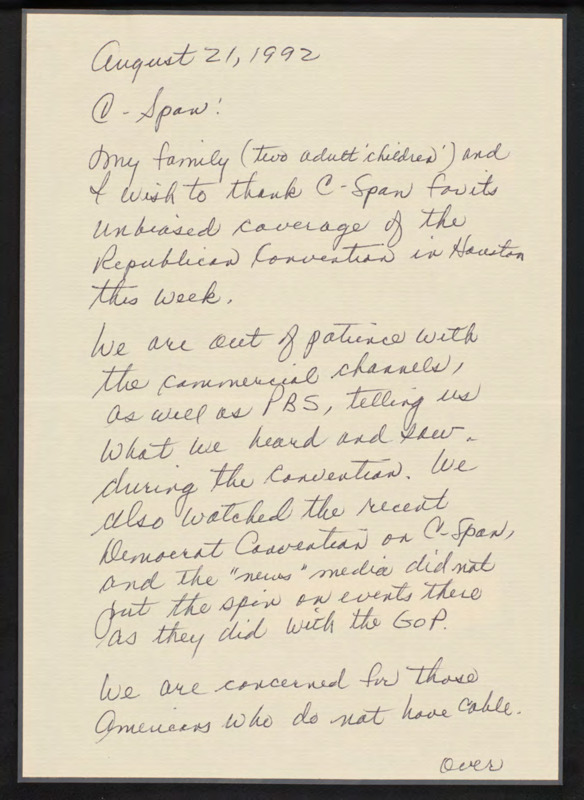 August 21, 1992
C-Span:
My family (two adult 'children') and
I wish to thank C-Span for its
unbiased coverage of the
Republican Convention in Houston
this week.
We are out of patience with
the commercial channels,
as well as PBS, telling us
what we heard and saw
during the convention. We
also watched the recent
Democrat Convention on C-Span,
and the "news" media did not
put the spin on events there
as they did with the GOP.
We are concerned for those
Americans who do not have cable.
over